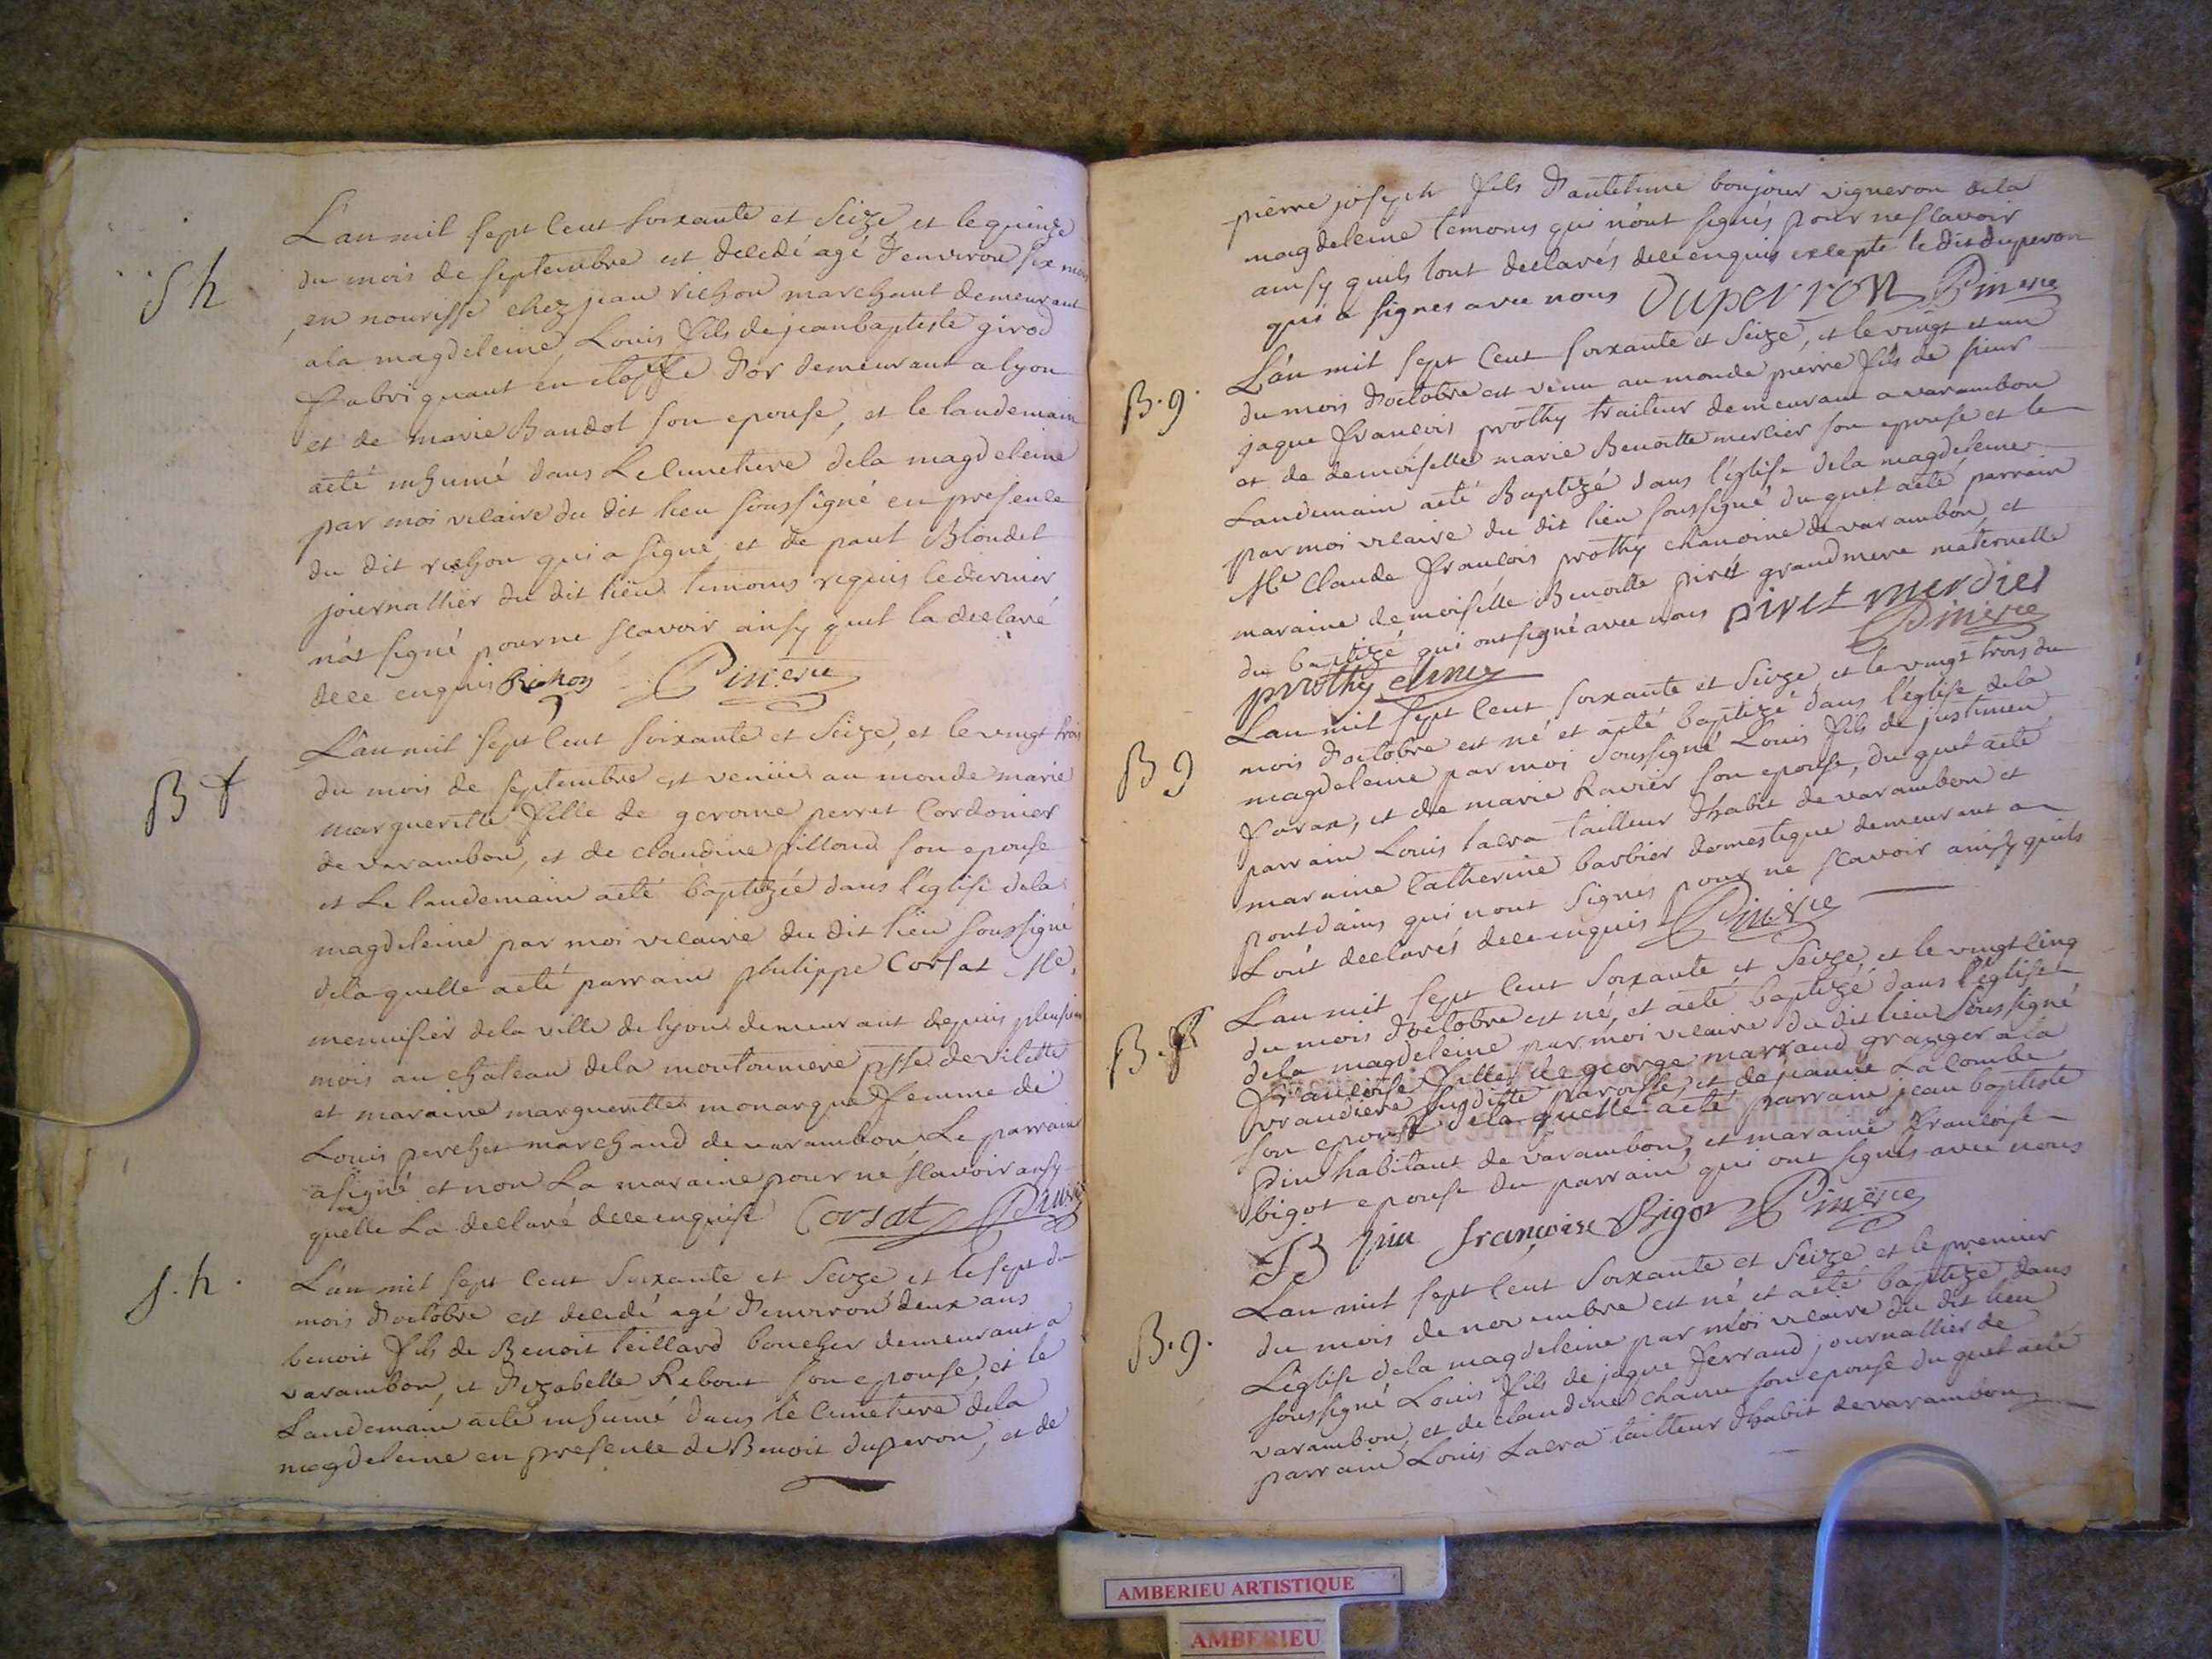 S h
L'an mil sept cent soixante et seize, et le quinze
du mois de septembre est decedé agé d'environ six mois
en nourisse chez jean richon marchant demeurant
a la magdeleine, Louis fils de jean baptiste girod
fabriquant en etoffe d'or demeurant a lyon
et de marie Baudot son epouse, et le landemain
aeté inhumé dans Le cimetiere dela magdeleine
par moi vicaire du dit lieu soussigné en presence
du dit richon qui a signé, et de paul Blondel
journallier du dit lieu temoins requis le dernier
n'at signé pour ne scavoir ainsy quil la declaré
dece enquis Richon Pinerie
B f
L'an mil sept cent soixante et seize, et le vingt trois
du mois de septembre est venüe au monde marie
margueritte fille de gerome perret cordonier
de varambon, et de claudine pilloud son epouse
et Le landemain aeté baptizée dans l'église dela
magdeleine par moi vicaire du dit lieu soussigné
delaquelle aeté parrain philippe Corsat Me
menuisier dela ville de lyon demeurant depuis plusieurs
mois au chateau dela moutonniere psse de vilette
et maraine margueritte monarque femme de
Louis percher marchand de varambon, Le parrain
a signé et non La maraine pour ne scavoir ainsy
quelle La declaré dece enquise Corsat Pinerie
S. h.
L'an mil sept cent soixante et seize et le sept du
mois d'octobre est decedé agé d'environ deux ans
benoit fils de Benoit teillard boucher demeurant a
varambon, et d'izabelle Rebout son epouse, et le
Landemain aeté inhumé dans le cimetiere dela
magdeleine en presence de Benoit duperon, et de
pierre joseph fils d'antelme bonjour vigneron dela
magdeleine temoins qui n'ont signés pour ne scavoir
ainsy quils l'ont declarés dece enquis excepte le dit duperon
qui a signes avec nous Duperron Pinerie
B. g.
L'an mil sept cent soixante et seize, et le vingt et un
du mois d'octobre est venu au monde pierre fils de sieur
jaque francois prothy traiteur demeurant a varambon
et de demoiselle marie Benoitte merlier son epouse et le
Landemain aeté Baptizé dans l'église dela magdeleine
par moi vicaire du dit lieu soussigné duquel aeté parrain
Me Claude francois prothy chanoine de varambon, et
maraine demoiselle Benoitte piret grandmere maternelle
du baptizé qui ont signé avec nous piret merdier
prothy Pinerie
B g
L'an mil sept cent soixante et seize et le vingt trois du
mois d'octobre est né et aeté baptizé dans l'église dela
magdeleine par moi soussigné Louis fils de justinien
favan, et de marie Ravier son epouse, duquel aeté
parrain Louis Lacra tailleur d'habit de varambon et
maraine Catherine barbier domestique demeurant au
pontdains qui nont signes pour ne scavoir ainsy quils
L'ont declarés dece enquis Pinerie
B. f
L'an mil sept cent soixante et seize, et le vingt cinq
du mois d'octobre est né, et aeté baptizé dans l'église
dela magdeleine par moi vicaire du dit lieu soussigné
francoise fille de george marraud granger a la
vraudiere susditte paroisse et de jeanne Lacombe
son epouse delaquelle aeté parrain jean baptiste
Pin habitant de varambon, et maraine francoise
bigot epouse du parrain qui ont signés avec nous
JB pin françoise Bigot Pinerie
B. g.
L'an mil sept cent soixante et seize et le premier
du mois de novembre est né et aeté baptizé dans
L'église dela magdeleine par moi vicaire du dit lieu
soussigné Louis fils de jaque ferraud journallier de
varambon, et de claudine chanu son epouse duquel aeté
parrain Louis Lacra tailleur d'habit de varambon
AMBERIEU ARTISTIQUE
AMBERIEU